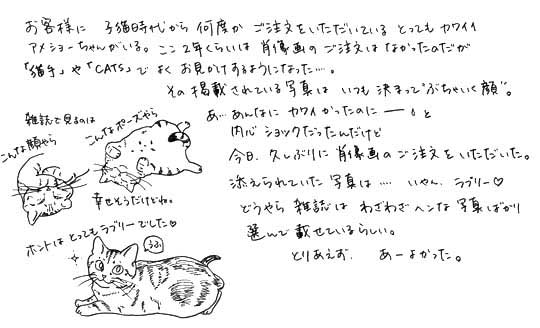 お客様に 子猫時代から 何度か ご注文をいただいている とっても カワイイ
アメショーちゃんがいる。ここ2年くらいは 肖像画の ご注文は なかったのだが
「猫手」や「CATS」で よく お見かけするようになった…。
その 掲載されている写真は いつも 決まって"ぶちゃいく顔"。
あ… あんなに カワイかったのに ――。と
内心 ショックだったんだけど
今日、久しぶりに 肖像画の ご注文を いただいた。
添えられていた 写真は …… いやん、ラブリー♡
どうやら 雑誌は わざわざ ヘンな 写真ばかり
選んで 載せているらしい。
とりあえず、 あーよかった。
雑誌で見るのは
こんな顔やら
こんなポーズやら
幸せそうだけどね。
ホントは とっても ラブリーでした♡
うふ